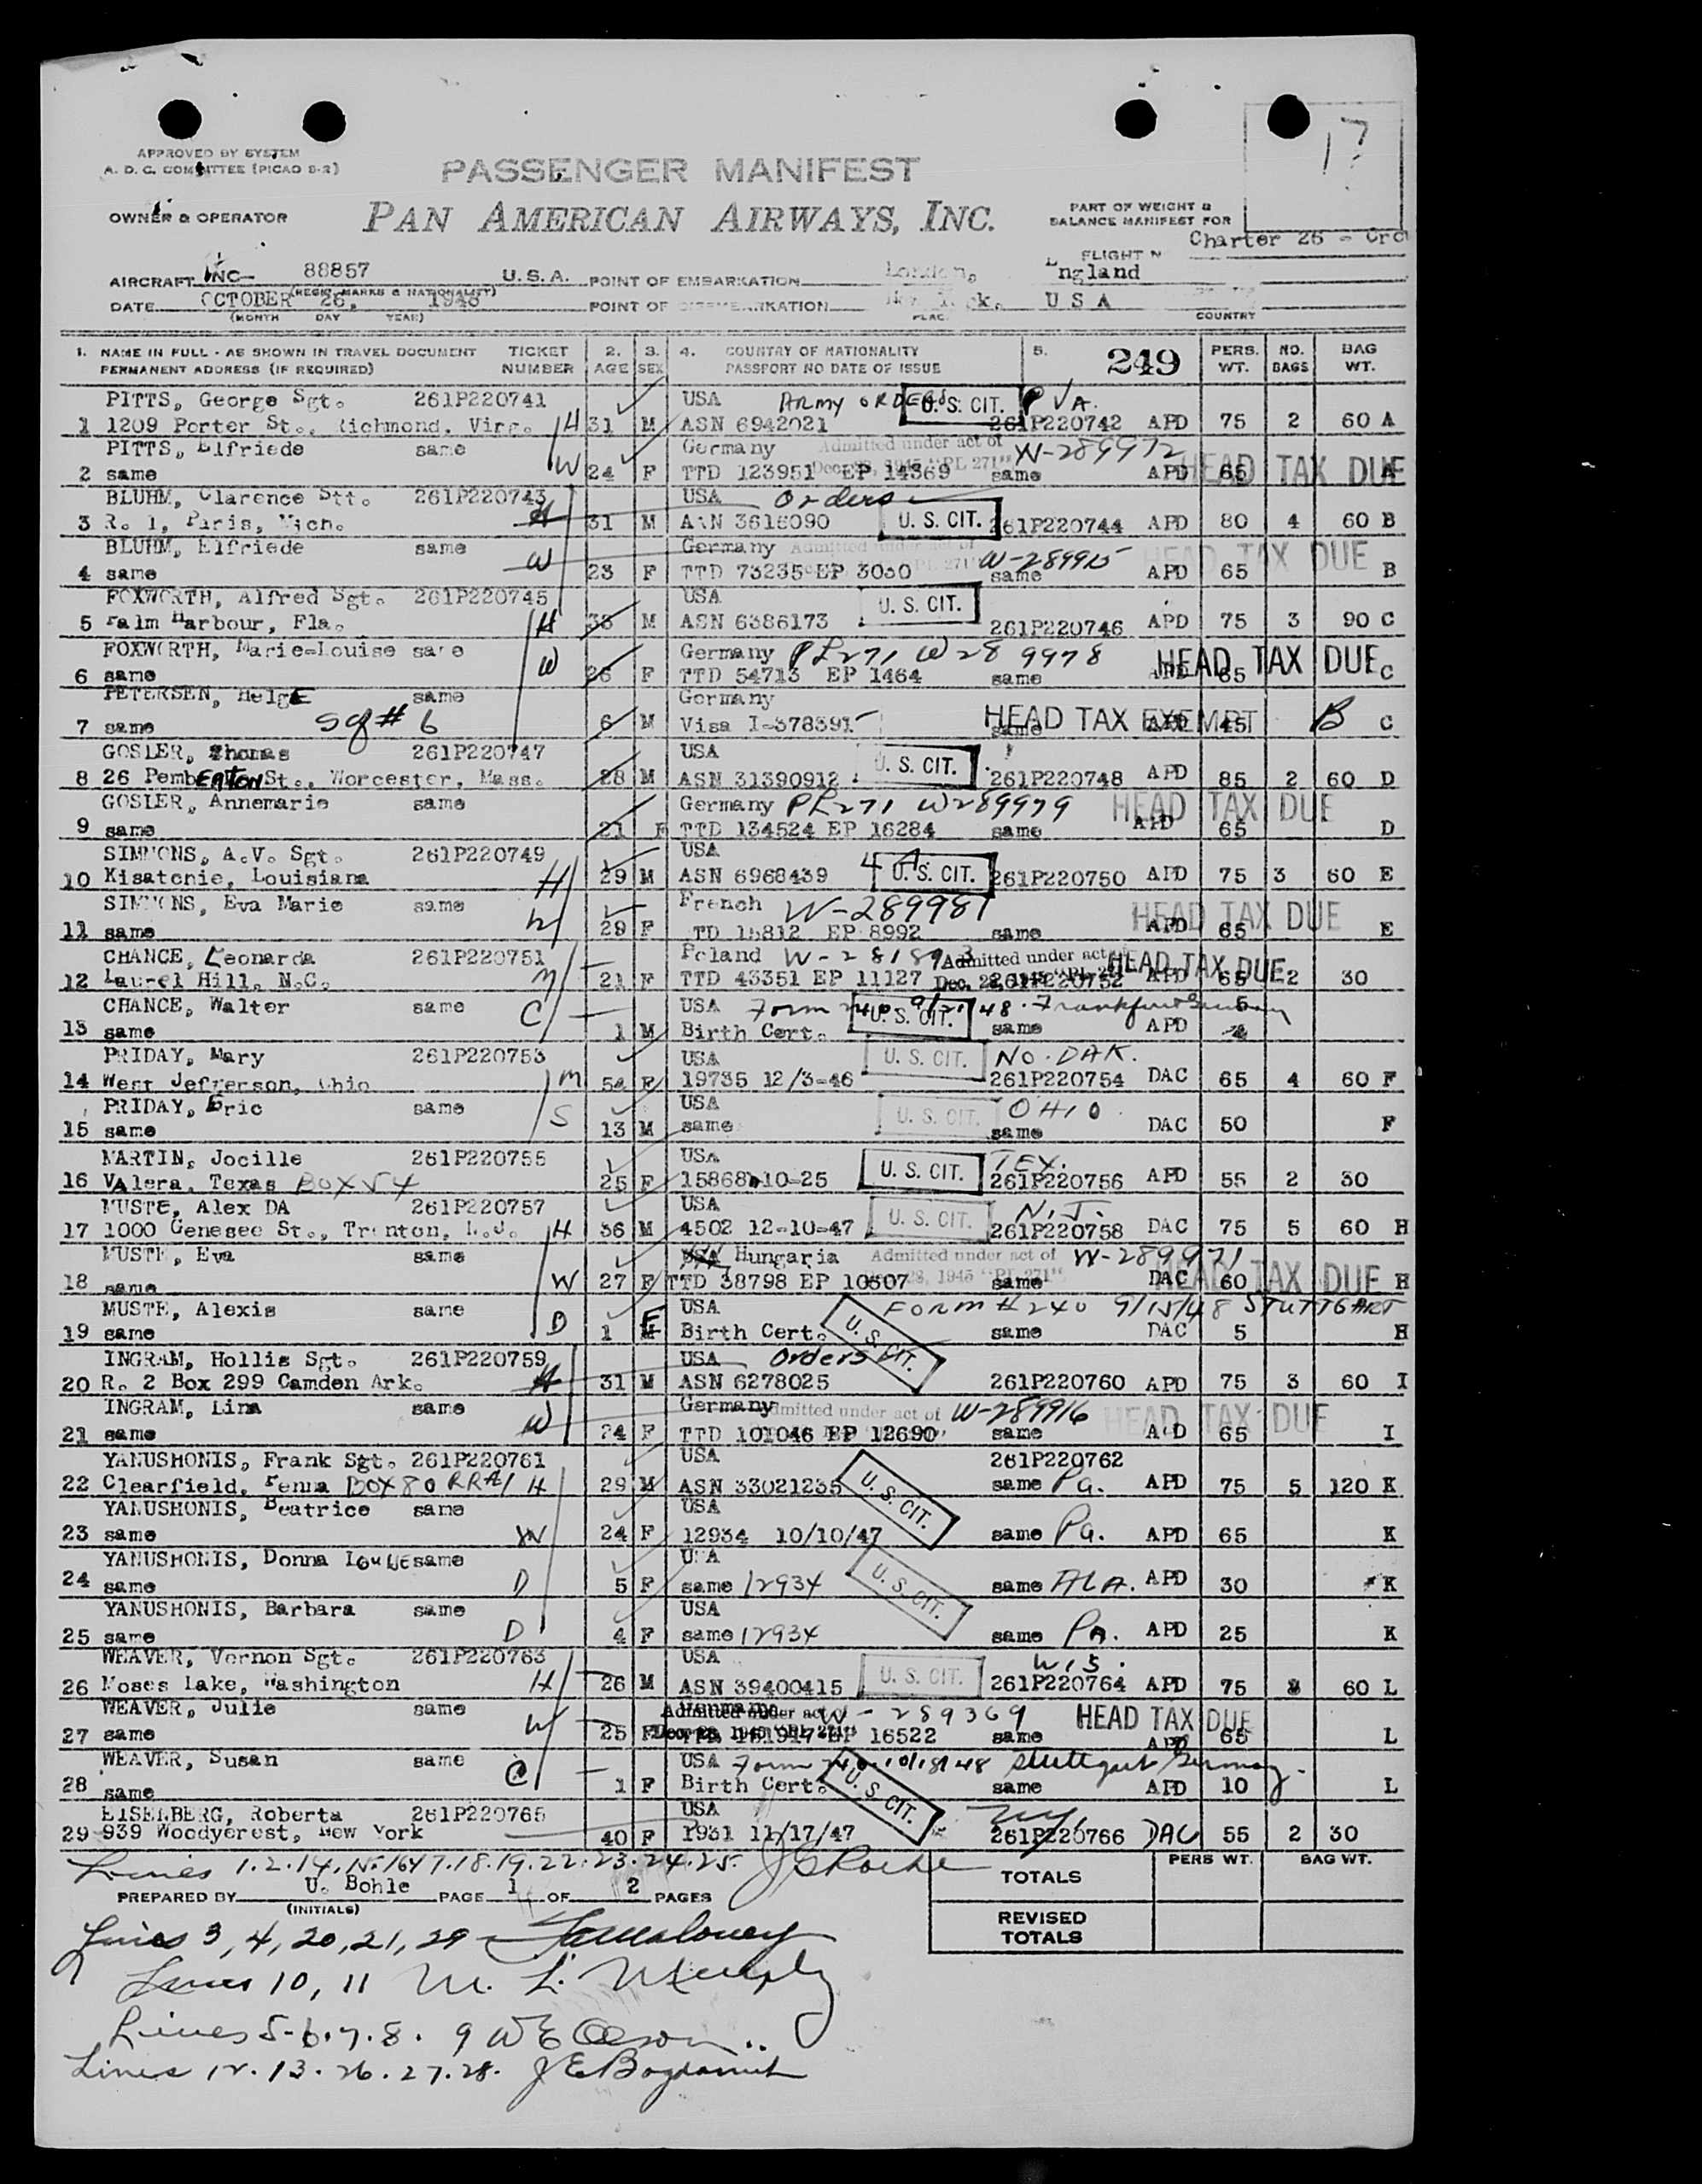 17
APPROVED BY SYSTEM
A. D. C. COMMITTEE (PICAO S-2)
PASSENGER MANIFEST
OWNER & OPERATOR
PAN AMERICAN AIRWAYS, INC.
PART OF WEIGHT &
BALANCE MANIFEST FOR
Charter 25 -
FLIGHT N
AIRCRAFT NC- 88857 U.S.A. POINT OF EMBARKATION London, England
(REGIS. MARKS & NATIONALITY)
DATE OCTOBER 26, 1948 POINT OF USA
(MONTH DAY YEAR) COUNTRY
1. NAME IN FULL - AS SHOWN IN TRAVEL DOCUMENT TICKET 2. 3. 4. COUNTRY OF NATIONALITY 5. 249 PERS. NO. BAG
PERMANENT ADDRESS (IF REQUIRED) NUMBER AGE SEX PASSPORT NO DATE OF ISSUE WT. BAGS WT.
PITTS, George Sgt. 261P220741 USA ARMY ORDERS U. S. CIT. VA.
1 1209 Porter St., Richmond, Virg. H 31 M ASN 6942021 261P220742 APD 75 2 60 A
PITTS, Elfriede same Germany Admitted under act of W-289972 HEAD TAX DUE
2 same W 24 F TTD 123951 EP 14369 same APD 65 A
BLUHM, Clarence Stt. 261P220743 USA Orders
3 R. 1, Paris, Mich. H 31 M ASN 3616090 U. S. CIT. 261P220744 APD 80 4 60 B
BLUHM, Elfriede same Germany Admitted under act of W-289915 HEAD TAX DUE
4 same W 23 F TTD 73235 EP 3030 same APD 65 B
FOXWORTH, Alfred Sgt. 261P220745 USA U. S. CIT.
5 Palm Harbour, Fla. H M ASN 6386173 261P220746 APD 75 3 90 C
FOXWORTH, Marie-Louise same Germany PL271 W28 9978 HEAD TAX DUE
6 same W 26 F TTD 54713 EP 1464 same APD 65 C
PETERSEN, HelgE same Germany
7 same sg# 6 6 M Visa I-378391 HEAD TAX EXEMPT same APD 45 B C
GOSLER, Thomas 261P220747 USA
8 26 PembERTON St., Worcester, Mass. 28 M ASN 31390912 U. S. CIT. 261P220748 APD 85 2 60 D
GOSLER, Annemarie same Germany PL271 W289979 HEAD TAX DUE
9 same 21 F TTD 134524 EP 16284 same APD 65 D
SIMMONS, A.V. Sgt. 261P220749 USA
10 Kisatchie, Louisiana H 29 M ASN 6968439 U. S. CIT. 261P220750 APD 75 3 60 E
SIMMONS, Eva Marie same French W-289981 HEAD TAX DUE
11 same W 29 F TD 15812 EP 8992 same APD 65 E
CHANCE, Leonarda 261P220751 Poland W-281893 Admitted under act HEAD TAX DUE
12 Laurel Hill, N.C. M 21 F TTD 43351 EP 11127 261P220752 APD 65 2 30
CHANCE, Walter same USA Form 240 9/21/48 Frankfurt Germany 5
13 same C 1 M Birth Cert. U. S. CIT. same APD
PRIDAY, Mary 261P220753 USA U. S. CIT. NO. DAK.
14 West Jefferson, Ohio M 54 F 19735 12/3-46 261P220754 DAC 65 4 60 F
PRIDAY, Eric same USA U. S. CIT. OHIO
15 same S 13 M same same DAC 50 F
MARTIN, Jocille 261P220755 USA U. S. CIT. TEX.
16 VAlera, Texas BOX 54 25 F 15868 10-25 261P220756 APD 55 2 30
MUSTE, Alex DA 261P220757 USA U. S. CIT. N.J.
17 1000 Genesee St., Trenton, N.J. H 36 M 4502 12-10-47 261P220758 DAC 75 5 60 H
MUSTE, Eva same USA Hungaria Admitted under act of W-289971 HEAD TAX DUE
18 same W 27 F TTD 38798 EP 10507 same DAC 60 H
MUSTE, Alexis same USA FORM #240 9/15/48 STUTTGART
19 same D 1 F Birth Cert. U. S. CIT. same DAC 5 H
INGRAM, Hollis Sgt. 261P220759 USA Orders
20 R. 2 Box 299 Camden Ark. H 31 M ASN 6278025 261P220760 APD 75 3 60 I
INGRAM, Lina same Germany Admitted under act of W-289916 HEAD TAX DUE
21 same W 24 F TTD 101046 EP 12690 same APD 65 I
YANUSHONIS, Frank Sgt. 261P220761 USA 261P220762
22 Clearfield, Penna BOX 80 RR#1 H 29 M ASN 33021235 U. S. CIT. same Pa. APD 75 5 120 K
YANUSHONIS, Beatrice same USA
23 same W 24 F 12934 10/10/47 same Pa. APD 65 K
YANUSHONIS, Donna LouisE same USA
24 same D 5 F same 12934 U. S. CIT. same ALA. APD 30 K
YANUSHONIS, Barbara same USA
25 same D 4 F same 12934 same PA. APD 25 K
WEAVER, Vernon Sgt. 261P220763 USA WIS.
26 Moses Lake, Washington H 26 M ASN 39400415 U. S. CIT. 261P220764 APD 75 60 L
WEAVER, Julie same Admitted under act of W-289369 HEAD TAX DUE
27 same W 25 F EP 16522 same APD 65 L
WEAVER, Susan same USA Form 240 10/18/48 Stuttgart Germany
28 same C 1 F Birth Cert. U. S. CIT. same APD 10 L
EISELBERG, Roberta 261P220765 USA NY.
29 939 Woodycrest, New York 40 F 1931 11/17/47 261P220766 DAC 55 2 30
Lines 1.2.14.15.16.17.18.19.22.23.24.25.
TOTALS PERS WT. BAG WT.
PREPARED BY U. Bohle PAGE 1 OF 2 PAGES
(INITIALS)
REVISED
TOTALS
Lines 3, 4, 20, 21, 29
Lines 10, 11 M. L. Murphy
Lines 5-6.7.8. 9
Lines 12.13.26.27.28.